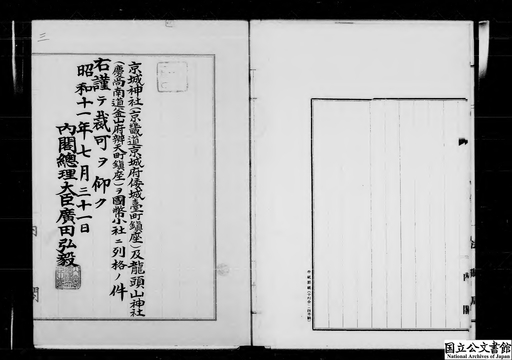 京城神社(京畿道京城府倭城臺町鎭座)及龍頭山神社
(慶尚南道釜山府辨天町鎭座)ヲ國幣小社ニ列格ノ件
右謹テ裁可ヲ仰ク
昭和十一年七月三十一日
內閣總理大臣廣田弘毅
三
国立公文書館
National Archives of Japan